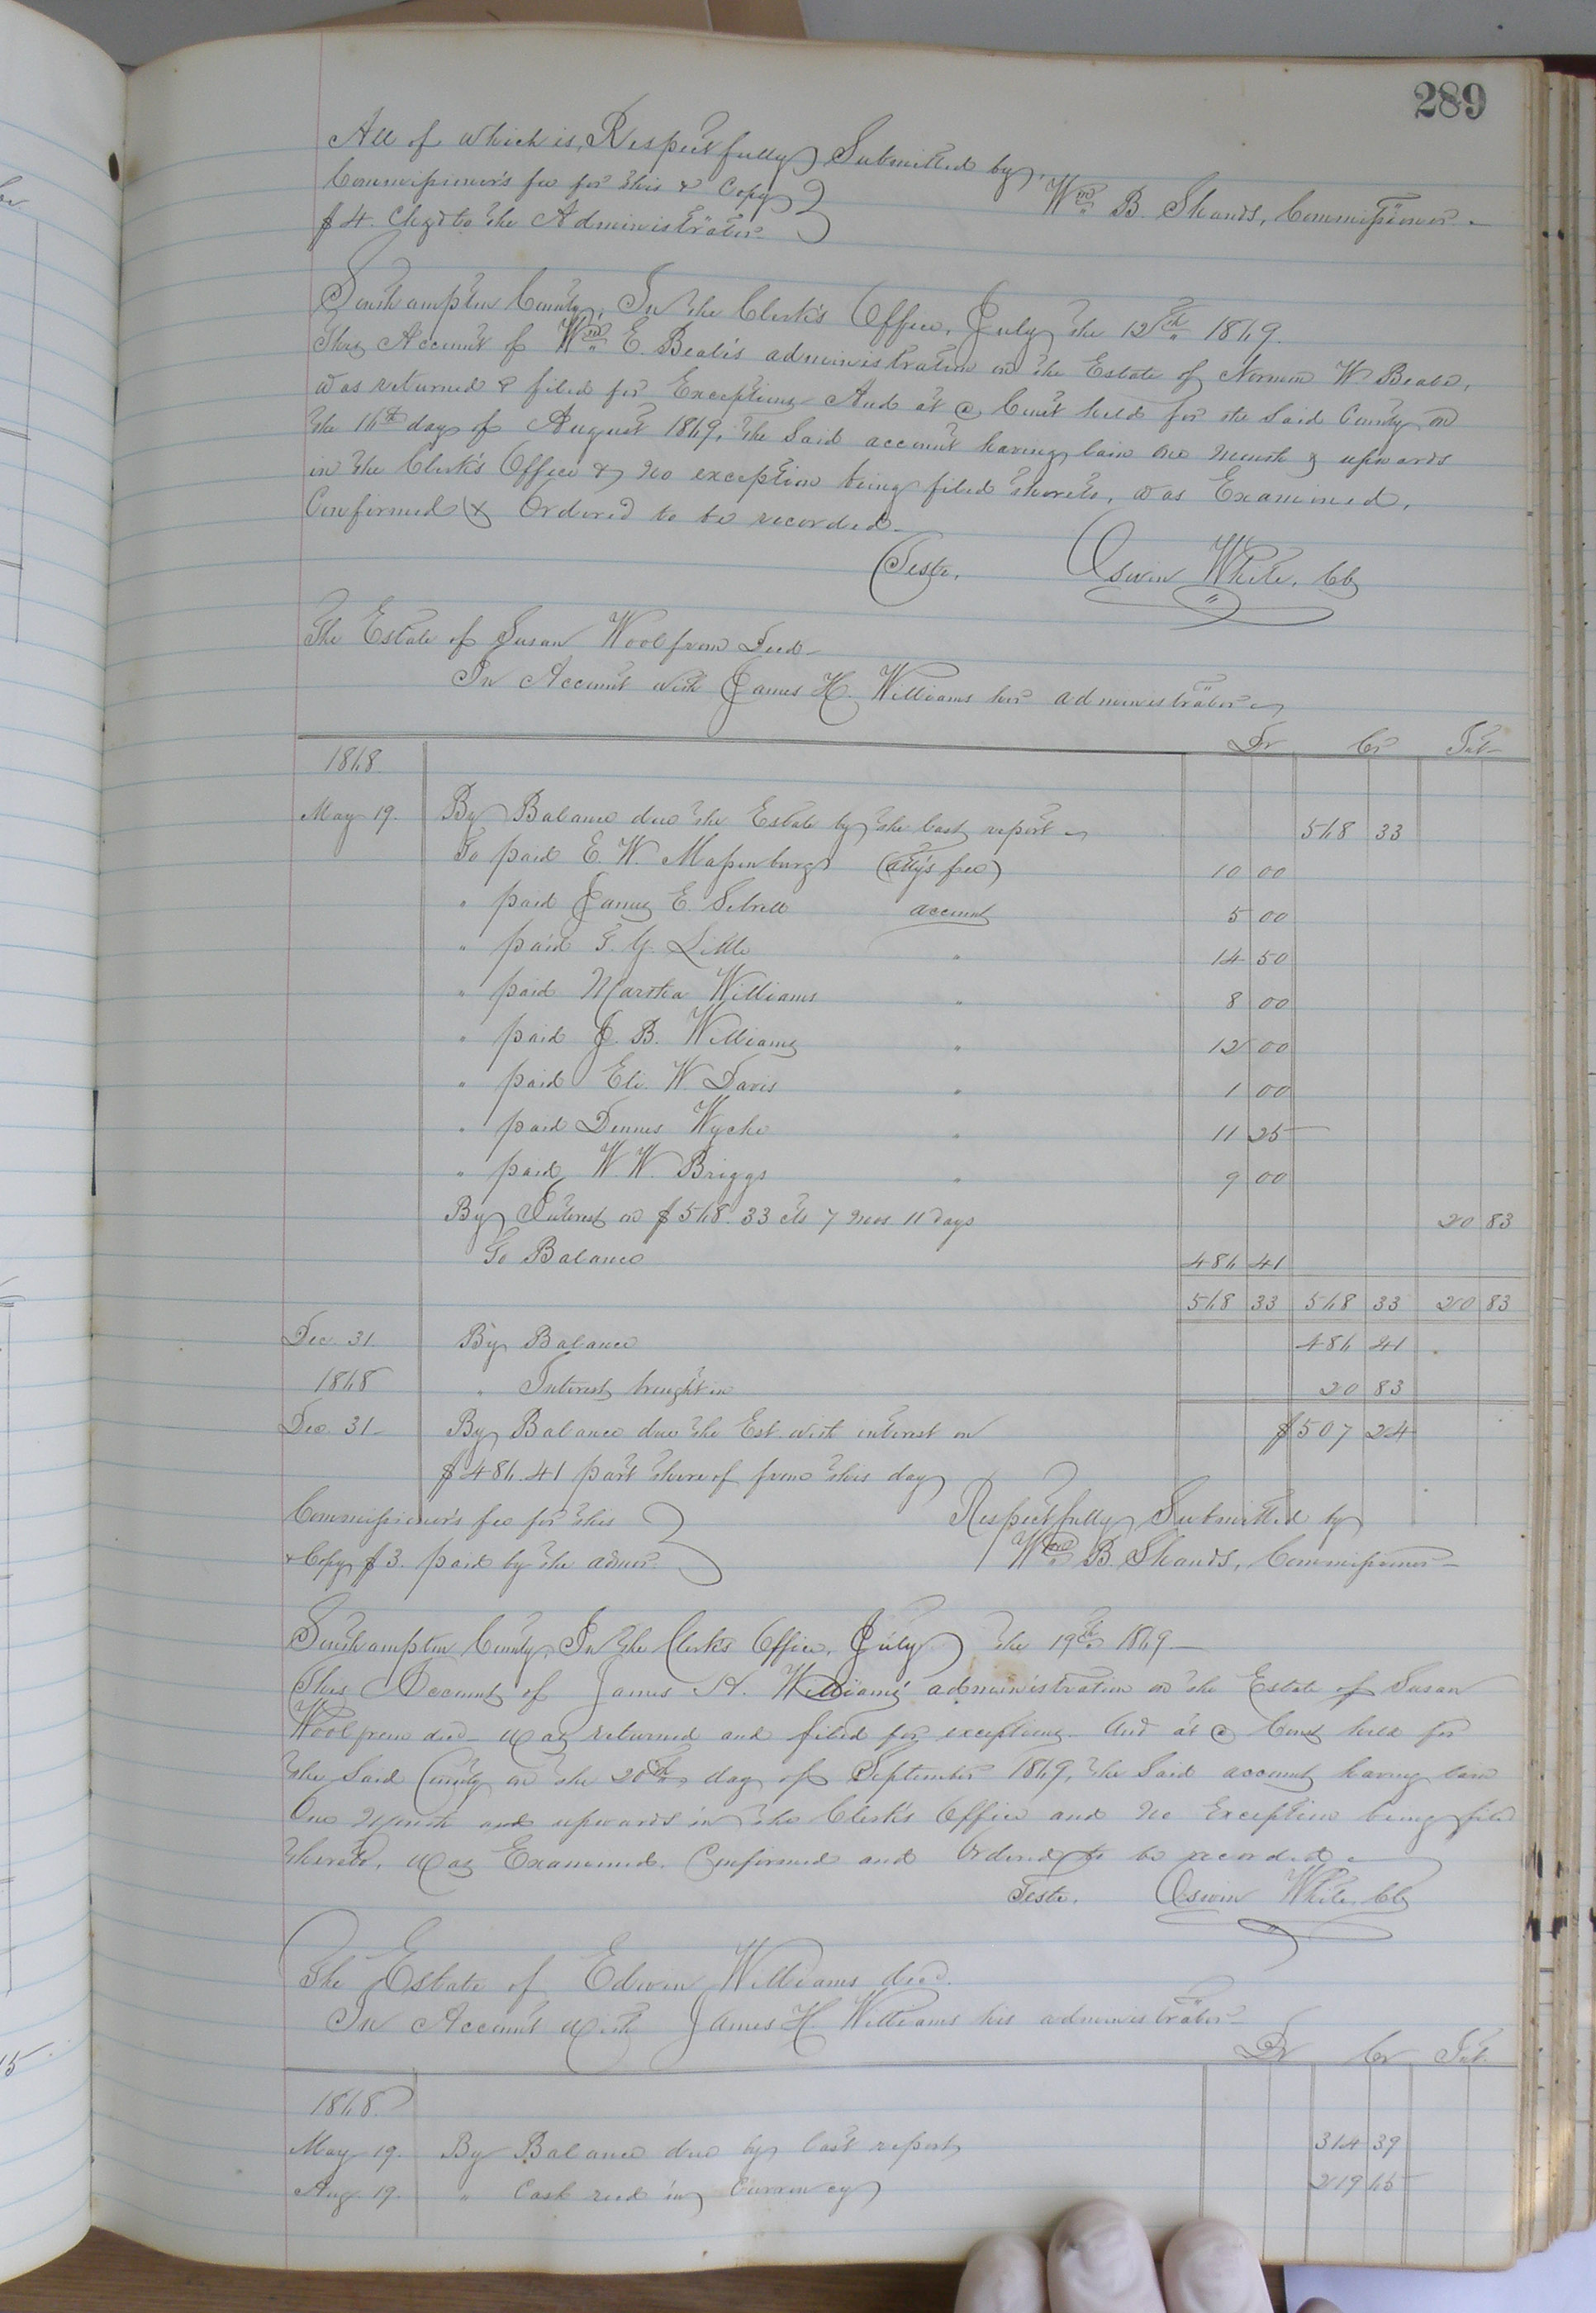 289
All of which is, Respectfully Submitted by,
Commissioner's fee for this & Copy
Wm B. Shands, Commissioner.
$4. Chgd to the Administrator.
Southampton County, In the Clerk's Office, July the 12th 1869.
This Account of Wm E. Beale's administration on the Estate of Norman W Beale,
was returned & filed for Exceptions And at a Court held for the Said County on
the 16th day of August 1869, the Said account having lain one month & upwards
in the Clerk's Office & no exception being filed thereto, was Examined,
Confirmed & Ordered to be recorded.
Teste, Oswin White, Clk
The Estate of Susan Woolfrom Decd
In Account with James H. Williams her administrator
Dr Cr Int
1868
May 19. By Balance due the Estate by the last report 568 33
To paid E. W. Massenburg (atty's fee) 10 00
" paid James E. Sebrell account 5 00
" paid T. Y. Little " 14 50
" paid Martha Williams " 8 00
" paid J. B. Williams " 12 00
" paid Eli W. Davis " 1 00
" paid Dennis Wyche " 11 25
" paid W. W. Briggs " 9 00
By Interest on $568.33 cts 7 mos 11 days 20 83
To Balance 486 41
568 33 568 33 20 83
Dec. 31. By Balance 486 41
1868 " Interest brought in 20 83
Dec. 31 By Balance due the Est. with interest on $507 24
$486.41 part thereof from this day
Commissioner's fee for this Respectfully Submitted by
& Copy $3. paid by the admr. Wm B. Shands, Commissioner
Southampton County, In the Clerk's Office, July the 19th 1869
This Account of James H. Williams' administration on the Estate of Susan
Woolfrom decd was returned and filed for exceptions. And at a Court held for
the Said County on the 20th day of September 1869, the Said account having lain
One Month and upwards in the Clerk's Office and No Exception being filed
thereto, was Examined, Confirmed and Ordered to be recorded
Teste. Oswin White, Clk
The Estate of Edwin Williams decd.
In Account with James H. Williams his administrator
Dr Cr Int.
1868
May 19. By Balance due by last report 314 39
Aug. 19. " Cash recd in Currency 219 65